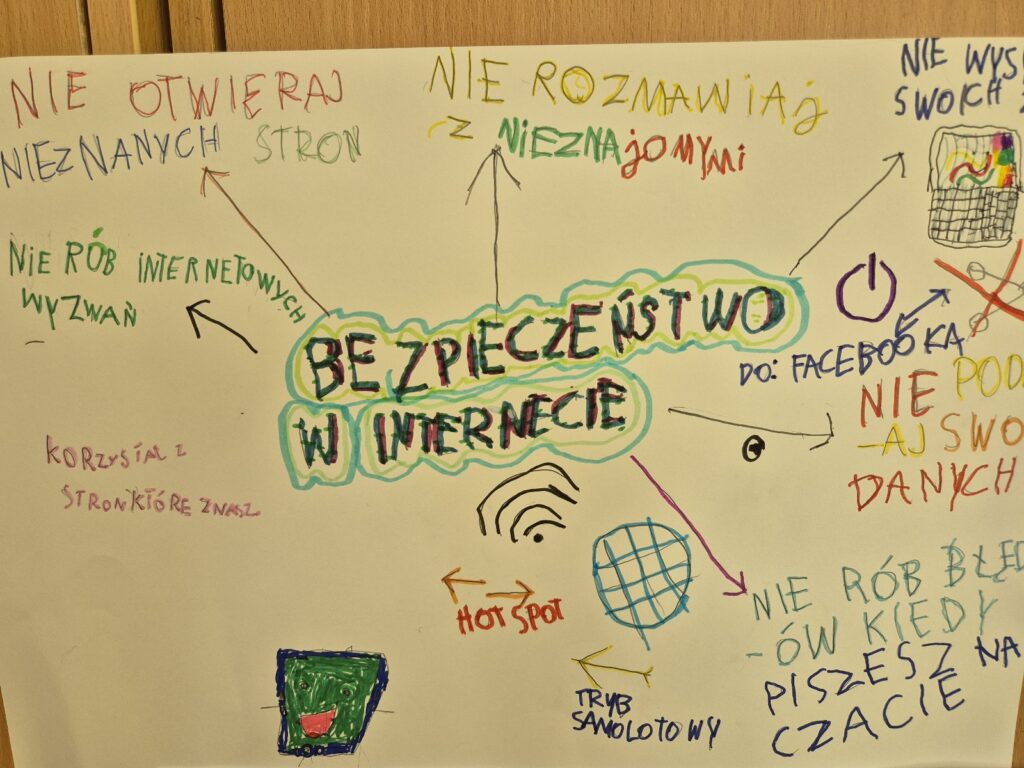 NIE OTWIERAJ
NIEZNANYCH STRON
NIE ROZMAWIAj
Z NIEZNAjOMYMi
NIE WYS
SWOICH
NiE RÓB iNTERNETOWYCH
WYZWAŃ
BEZPIECZEŃSTWO
W INTERNECIE
DO: FACEBOÓKA
NIE POD
-AJ SWO
DANYCH
KORZYSTAJ Z
STRON KTÓRE ZNASZ
HOTSPOT
NIE RÓB BŁĘD
-ÓW KIEDY
PISZESZ NA
CZACIE
TRYB
SAMOLOTOWY